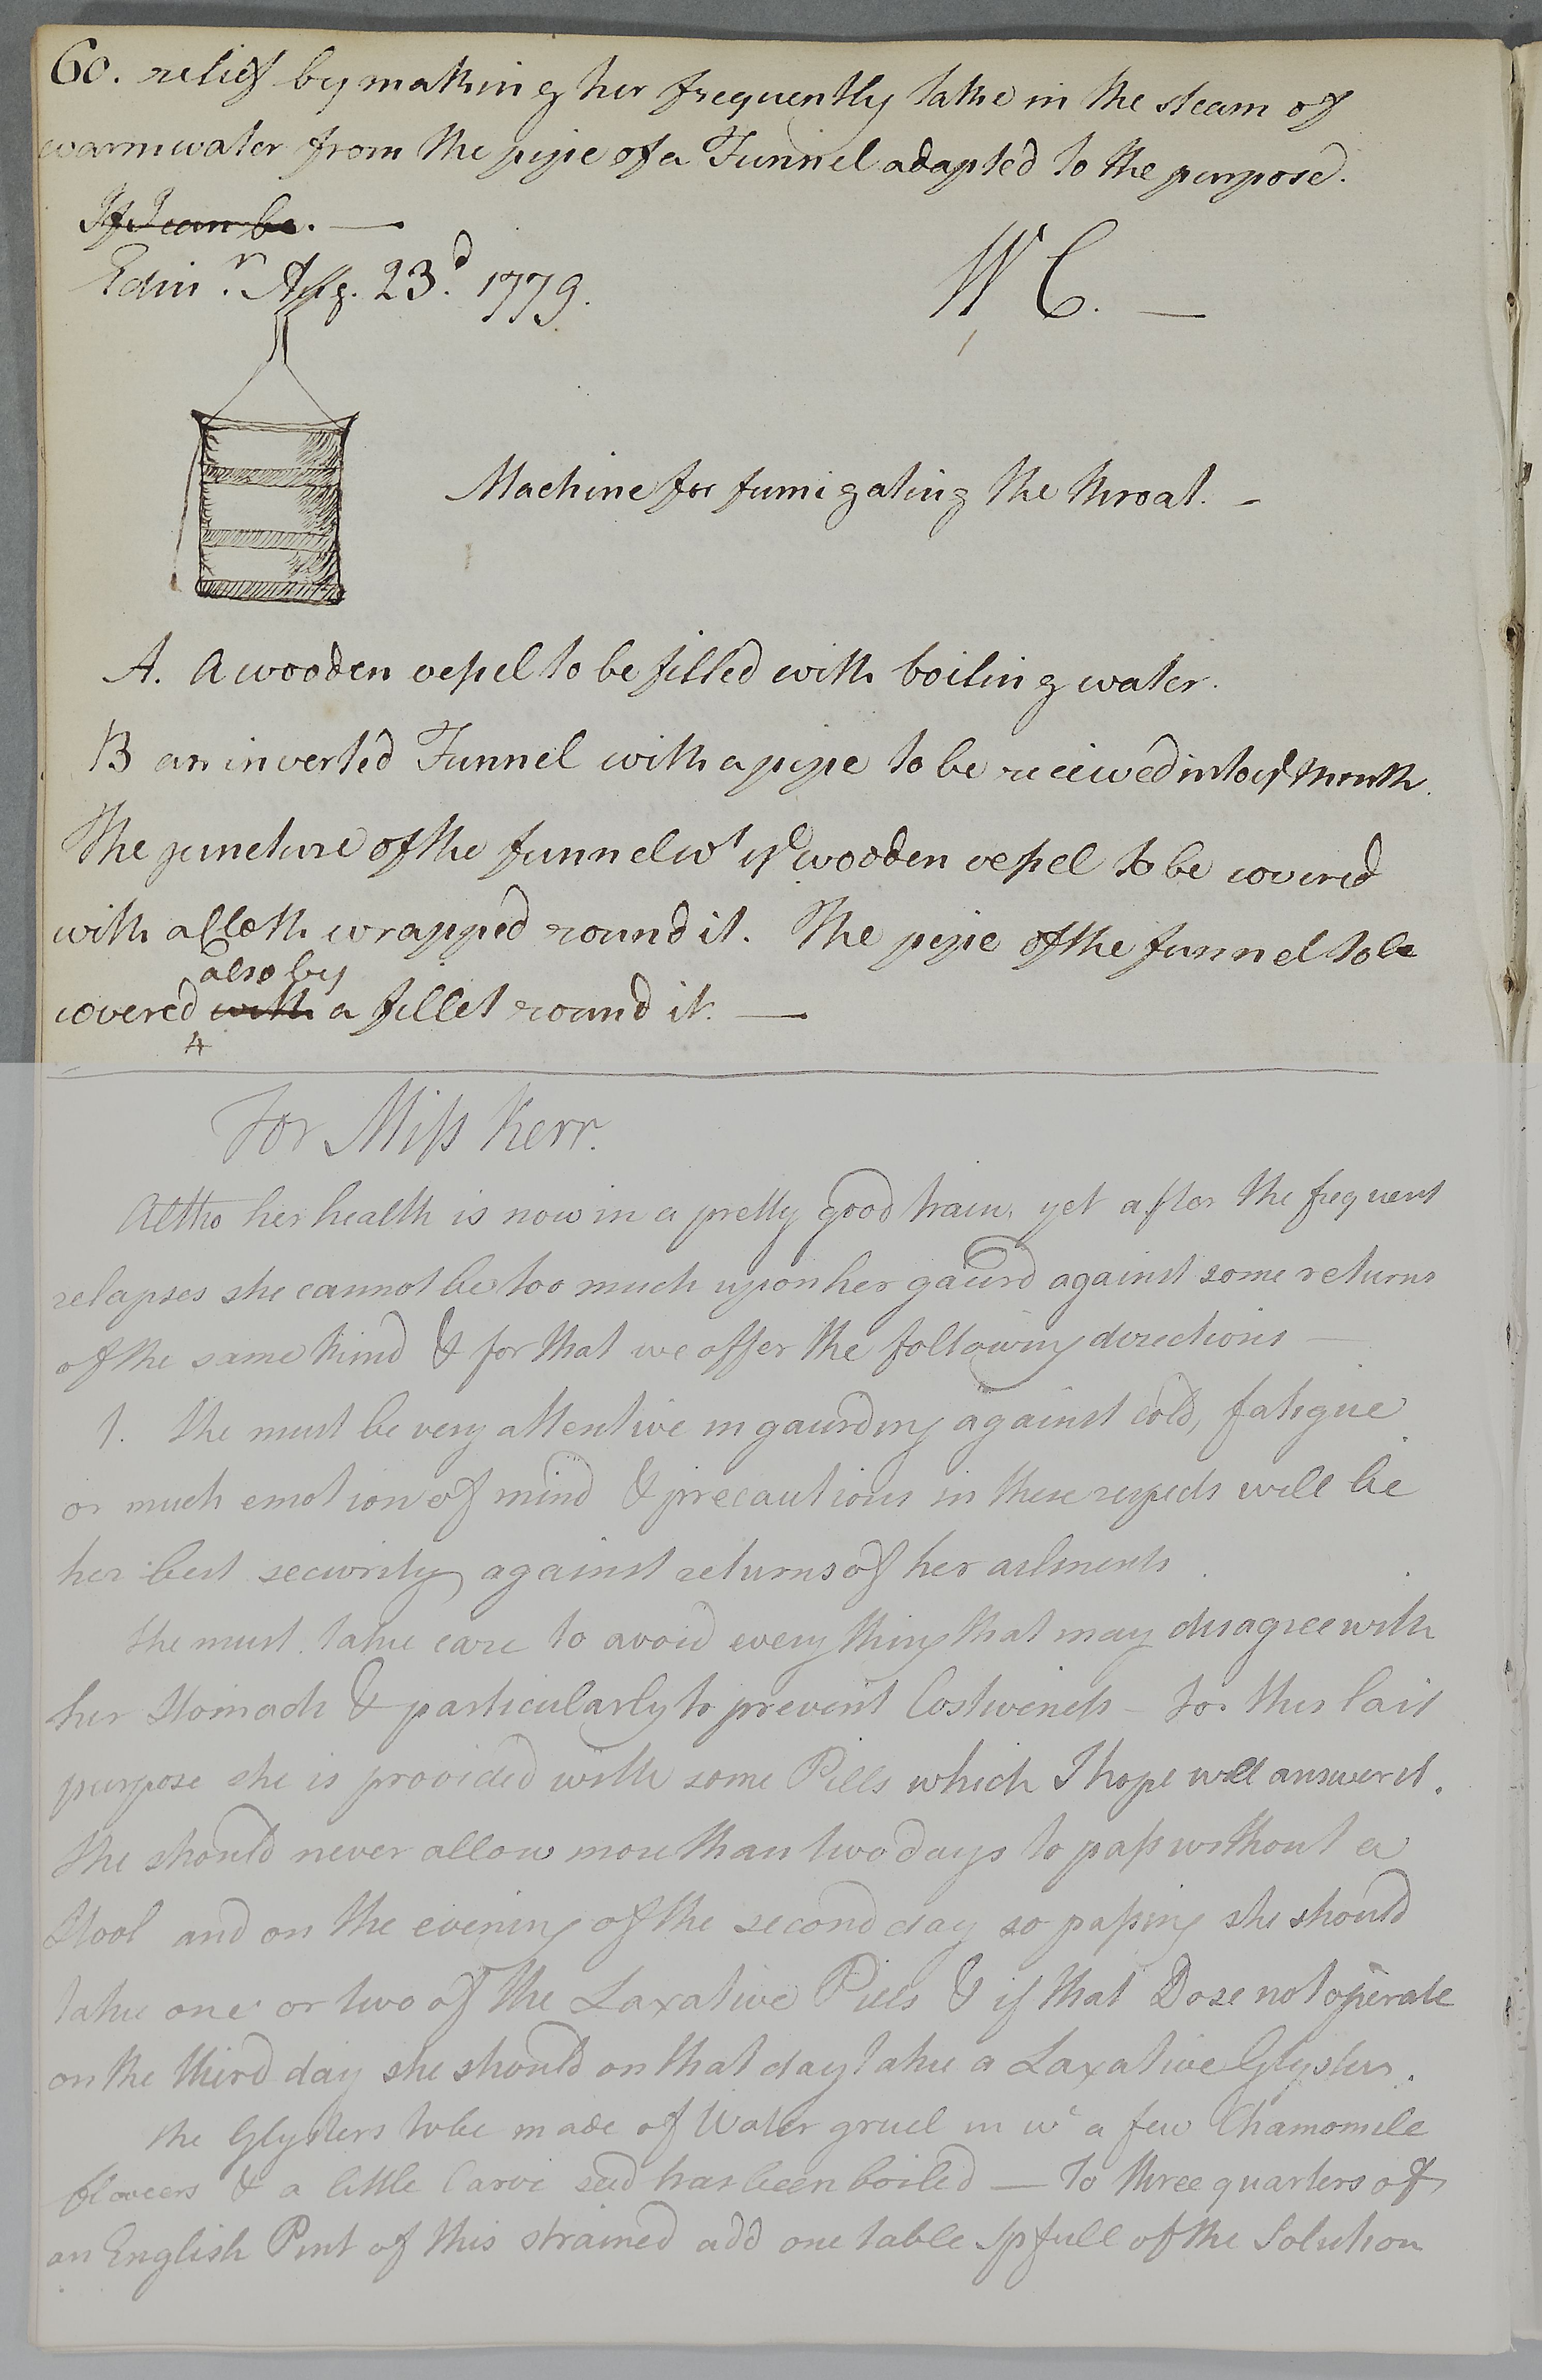 60. relief by making her frequently take in the steam of
warm water from the pipe of a Funnel adapted to the purpose.
If I can be. —
Edinr. Aug. 23d. 1779.
W C. —
Machine for fumigating the throat. -
A. A wooden vessel to be filled with boiling water.
B an inverted Funnel with a pipe to be received into ye Mouth.
The juncture of the funnel wt ye wooden vessel to be covered
with a Cloth wrapped round it. The pipe of the funnel to be
also by
covered with a fillet round it. —
For Miss Kerr.
Altho her health is now in a pretty good train, yet after the frequent
relapses she cannot be too much upon her gaurd against some returns
of the same kind & for that we offer the following directions —
1. She must be very attentive in gaurding against cold, fatigue
or much emotion of mind & precautions in these respects will be
her best security against returns of her ailments
She must take care to avoid every thing that may disagree with
her Stomach & particularly to prevent Costiveness - For this last
purpose she is provided with some Pills which I hope will answer it.
She should never allow more than two days to pass without a
Stool and on the evening of the second day so passing she should
take one or two of the Laxative Pills & if that Dose not operate
on the third day she should on that day take a Laxative Glyster.
The Glysters to be made of Water gruel in wc a few Chamomile
flowers & a little Carvi seed has been boiled — To three quarters of
an English Pint of this strained add one table spfull of the Solution